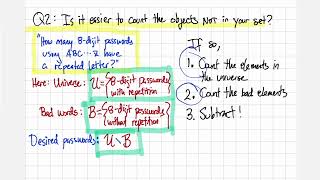 Q2: Is it easier to count the objects NOT in your set?
"How many 8-digit passwords
using ABC...Z have
a repeated letter?"
Here: Universe: U = {8-digit passwords
with repetition}
Bad words: B = {8-digit passwords
without repetition}
Desired passwords: U \ B
If so,
1. Count the elements in
the universe
2. Count the bad elements
3. Subtract!